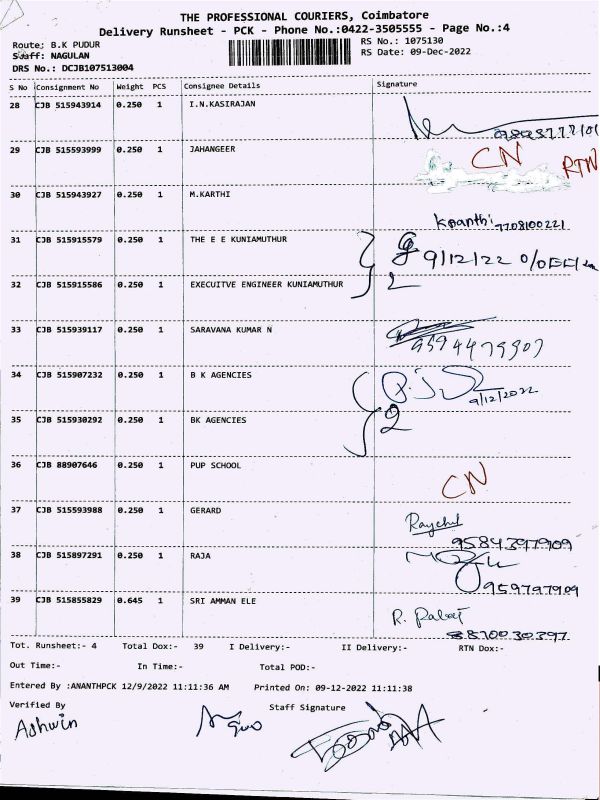 THE PROFESSIONAL COURIERS, Coimbatore
Delivery Runsheet - PCK - Phone No.:0422-3505555 - Page No.:4
Route: B.K PUDUR
RS No.: 1075130
Staff: NAGULAN
RS Date: 09-Dec-2022
DRS No.: DCJB107513004
S No Consignment No Weight PCS Consignee Details Signature
28 CJB 515943914 0.250 1 I.N.KASIRAJAN
29 CJB 515593999 0.250 1 JAHANGEER CN RTN
30 CJB 515943927 0.250 1 M.KARTHI
7708100221
31 CJB 515915579 0.250 1 THE E E KUNIAMUTHUR
9/12/22
32 CJB 515915586 0.250 1 EXECUITVE ENGINEER KUNIAMUTHUR 2
33 CJB 515939117 0.250 1 SARAVANA KUMAR N
34 CJB 515907232 0.250 1 B K AGENCIES
9/12/2022
35 CJB 515930292 0.250 1 BK AGENCIES 2
36 CJB 88907646 0.250 1 PUP SCHOOL CN
37 CJB 515593988 0.250 1 GERARD
9584397909
38 CJB 515897291 0.250 1 RAJA
959797909
39 CJB 515855829 0.645 1 SRI AMMAN ELE
8870030397
Tot. Runsheet:- 4 Total Dox:- 39 I Delivery:- II Delivery:- RTN Dox:-
Out Time:- In Time:- Total POD:-
Entered By :ANANTHPCK 12/9/2022 11:11:36 AM Printed On: 09-12-2022 11:11:38
Verified By Staff Signature
Ashwin